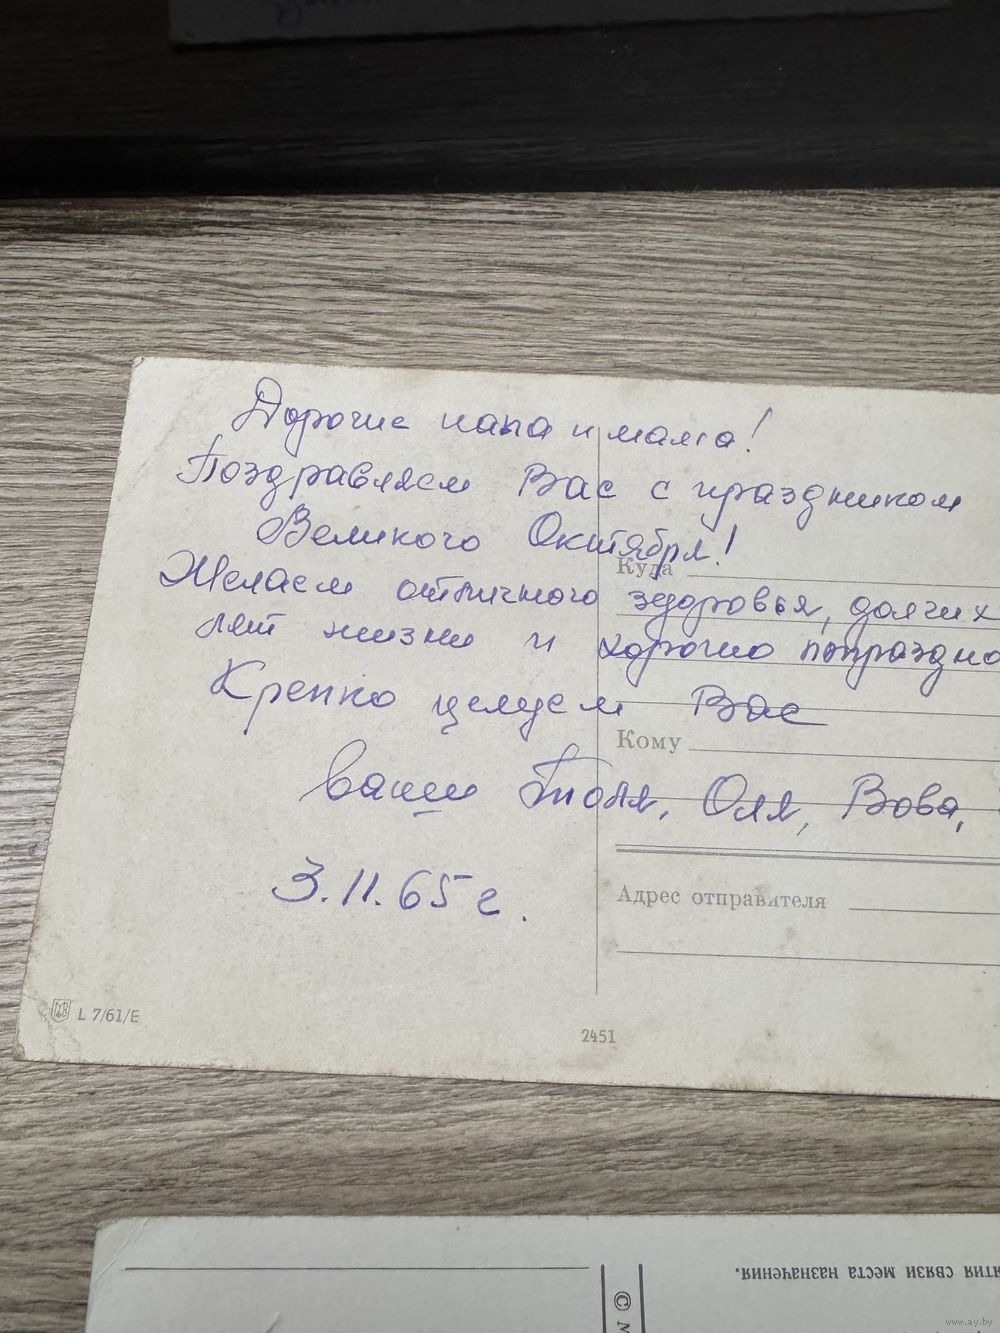 Дорогие папа и мама!
Поздравляем Вас с праздником
Великого Октября!
Желаем отличного здоровья, долгих
лет жизни и хорошо попраздно
Крепко целуем Вас
ваши Толя, Оля, Вова,
3.11.65 г.
Куда
Кому
Адрес отправителя
L 7/61/E
2451
ятия связи места назначения.
© М
www.ay.by